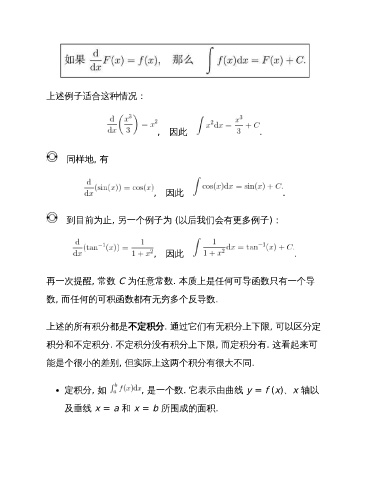 如果 d/dx F(x) = f(x), 那么 ∫ f(x)dx = F(x) + C.
上述例子适合这种情况：
d/dx (x³/3) = x², 因此 ∫ x²dx = x³/3 + C.
同样地, 有
d/dx (sin(x)) = cos(x), 因此 ∫ cos(x)dx = sin(x) + C.
到目前为止, 另一个例子为 (以后我们会有更多例子)：
d/dx (tan⁻¹(x)) = 1/(1 + x²), 因此 ∫ 1/(1 + x²) dx = tan⁻¹(x) + C.
再一次提醒, 常数 C 为任意常数. 本质上是任何可导函数只有一个导
数, 而任何的可积函数都有无穷多个反导数.
上述的所有积分都是不定积分. 通过它们有无积分上下限, 可以区分定
积分和不定积分. 不定积分没有积分上下限, 而定积分有. 这看起来可
能是个很小的差别, 但实际上这两个积分有很大不同.
• 定积分, 如 ∫ₐᵇ f(x)dx, 是一个数. 它表示由曲线 y = f (x)、x 轴以
及垂线 x = a 和 x = b 所围成的面积.